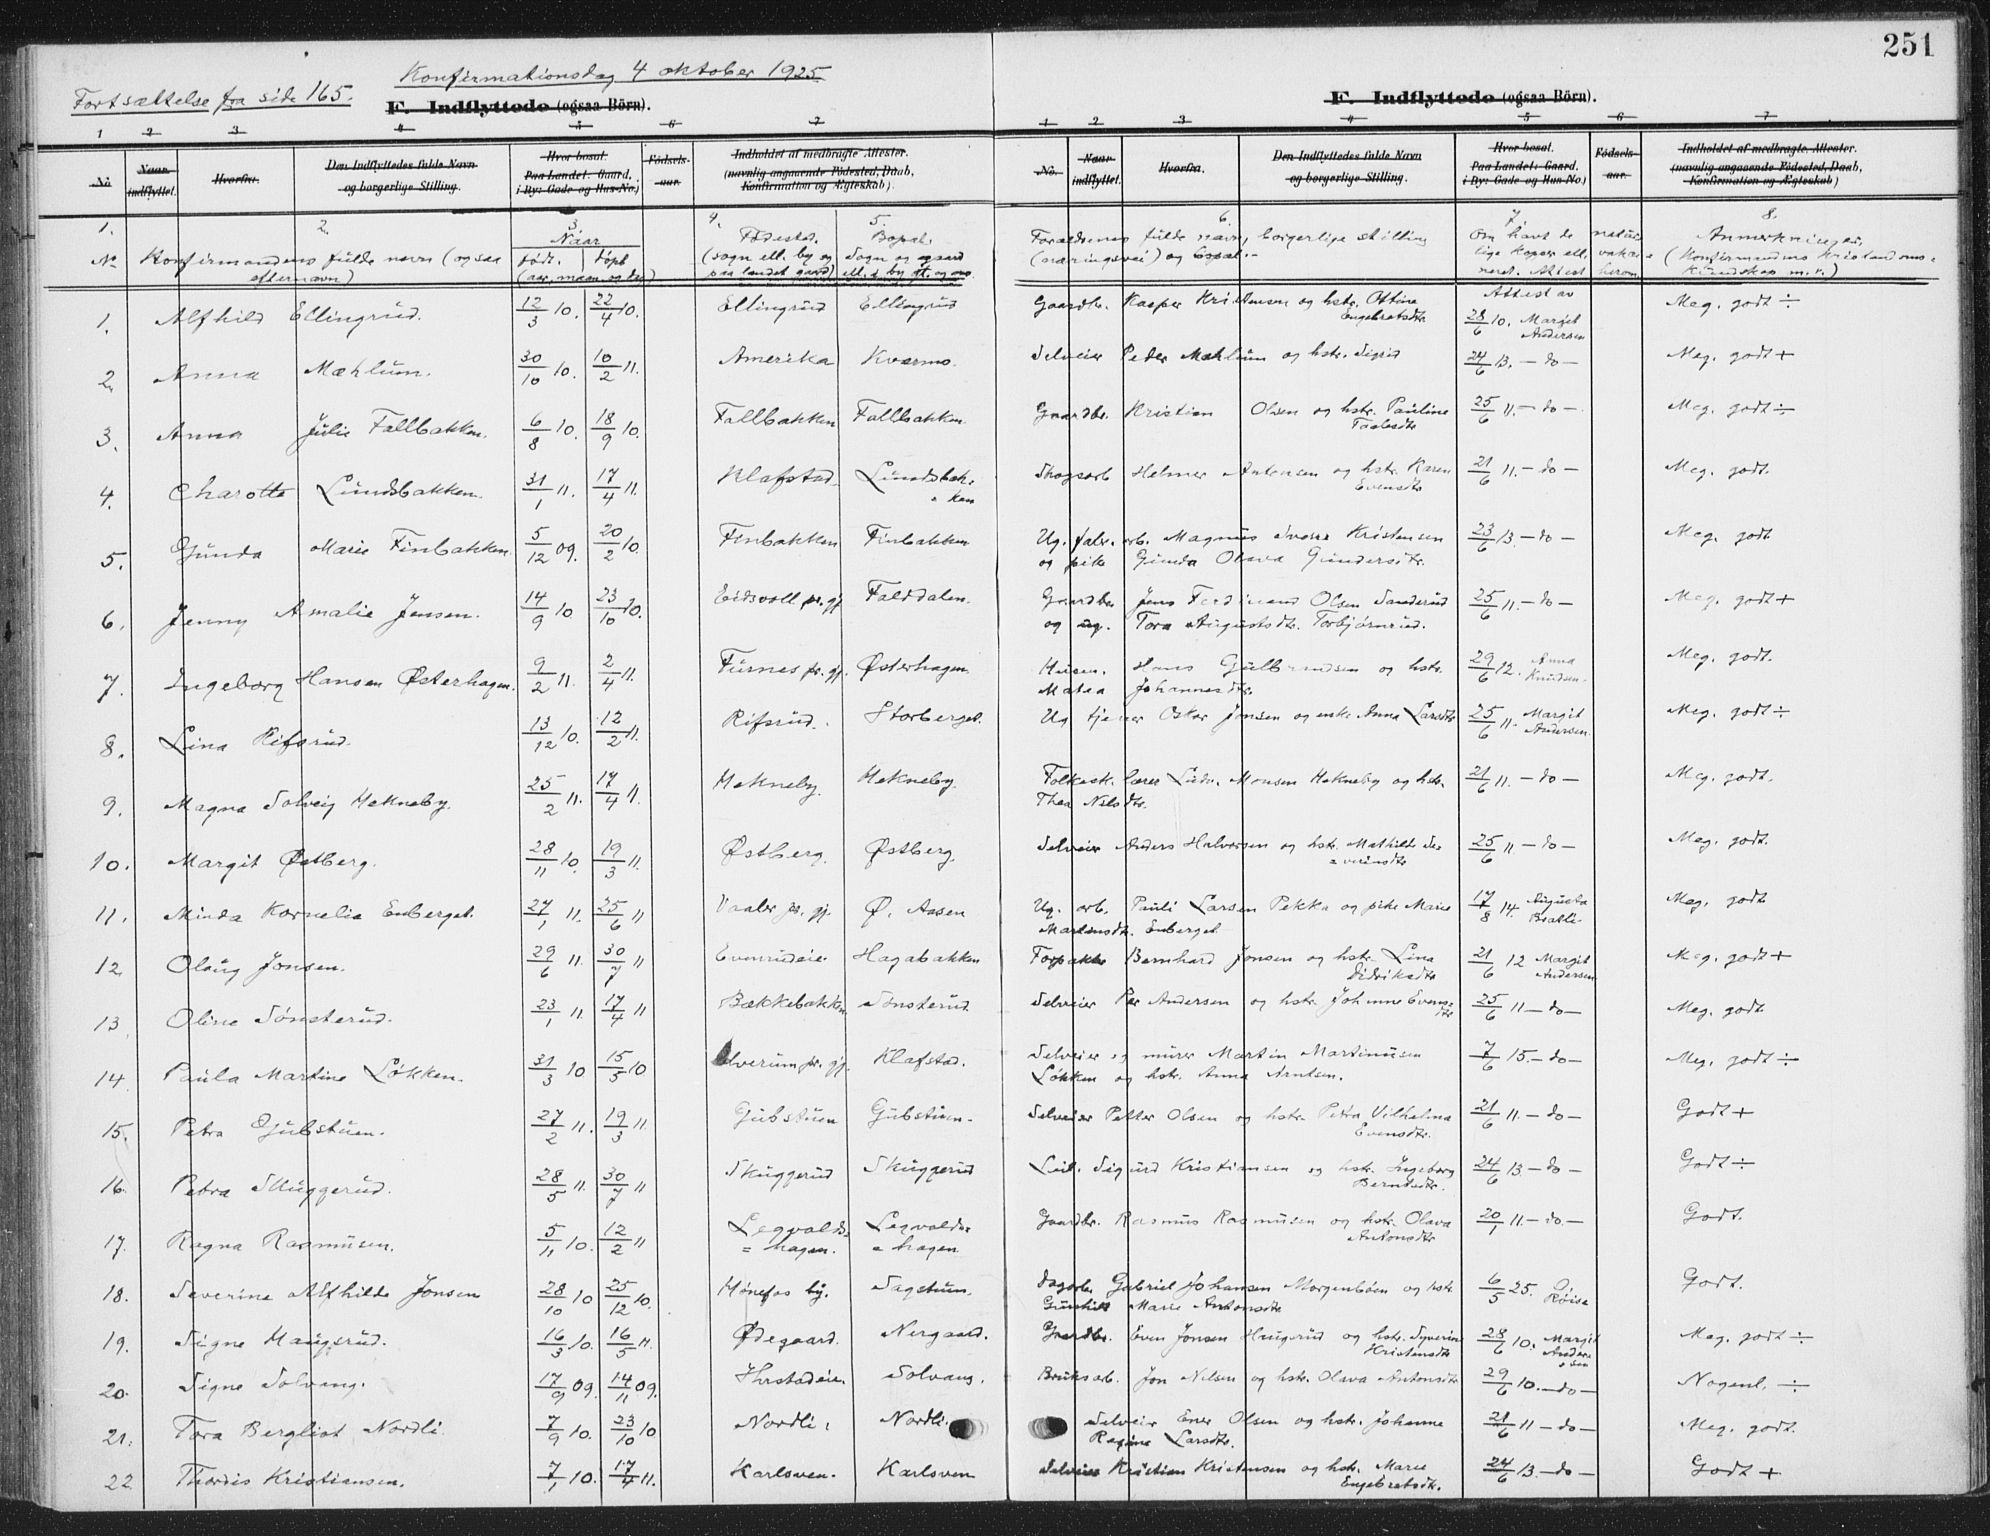 251
Konfirmationsdag 4 oktober 1925
Fortsættelse fra side 165.
F. Indflyttede (ogsaa Börn).
F. Indflyttede (ogsaa Börn).
1 2 3 4 5 6 7
1 2 3 4 5 6 7
No Naar indflyttet. Hvorfra. Den Indflyttedes fulde Navn og borgerlige Stilling. Hvor bosat. Paa Landet: Gaard, i By: Gade og Hus-No.) Födsels-aar. Indholdet af medbragte Attester. (navnlig angaaende Födested, Daab, Konfirmation og Ægteskab).
No. Naar indflyttet. Hvorfra. Den Indflyttedes fulde Navn og borgerlige Stilling. Hvor bosat. Paa Landet: Gaard. i By: Gade og Hus-No.) Födsels-aar. Indholdet af medbragte Attester. (navnlig angaaende Födested, Daab, Konfirmation og Ægteskab)
1. 2. 3. 4. 5. 6. 7. 8.
No Konfirmandens fulde navn (ogsaa efternavn) Naar født. døpt (aar, maan. og dag) Fødested. (sogn ell. by og paa landet gaard) Bopæl. Sogn og gaard ell. i by gt. og no. Forældrenes fulde navn, borgerlige stilling (næringsvei) og bopæl. Om havt de naturlige kopper ell. vakcineret. Attest herom Anmerkninger, (Konfirmandens kristendomskundskap m.v.)
1. Alfhild Ellingrud. 12/3 10. 22/4 10. Ellingrud Ellingrud Gaardb. Kasper Kristensen og hstr. Ottine Engebretsdtr. Attest av 28/6 10. Margit Andersen Meg. godt ÷
2. Anna Mæhlum. 30/10 10. 10/2 11. Amerika Kværmo. Selveier Peder Mæhlum og hstr. Sigrid 24/6 13. — do — Meg. godt +
3. Anna Julie Fallbakken. 6/8 10. 18/9 10. Fallbakken Fallbakken. Gaardbr. Kristian Olsen og hstr. Pauline 25/6 11. — do — Meg. godt ÷
4. Charotte Lundsbakken. 31/1 11. 17/4 11. Klafstad Lundsbakken Skogsarb Helmer Antonsen og hstr. Karen Evensdtr 21/6 11. — do — Meg. godt.
5. Gunda Marie Finbakken. 5/12 09. 20/2 10. Finbakken Finbakken Ug. fabr. arb. Magnus Kristensen og pike Gunda Olava Gundersdtr. 23/6 13. — do — Meg. godt
6. Jenny Amalie Jensen. 14/9 10. 23/10 10. Eidsvoll pr. gj. Falddalen. Gaardbr Jens Ferdinand Olsen Sanderud og ug. Tora Augustsdtr. Torbjørnrud. 25/6 11. — do — Meg. godt +
7. Ingeborg Hansen Østerhagen. 9/2 11. 2/4 11. Furnes pr. gj. Østerhagen. Husm. Hans Gulbrandsen og hstr. Matea Johannesdtr. 29/6 12. Anna Knudsen. Meg. godt.
8. Lina Rifsrud. 13/12 10. 12/2 11. Rifsrud. Storberget. Ug tjener Oskar Jensen og enke Anna Larsdtr 25/6 11. Margit Andersen. Meg. godt ÷
9. Magna Solveig Hekneby. 25/2 11. 17/4 11. Hekneby. Hekneby. Folkesk. lærer Ludv. Monsen Hekneby og hstr. Thea Nilsdtr. 21/6 11. — do — Meg. godt.
10. Margit Østberg. 28/11 10. 19/3 11. Østberg. Østberg. Selveier Anders Halvorsen og hstr. Mathilde Severinsdtr 25/6 11 — do — Meg. godt.
11. Minda Kornelia Enberget. 27/1 11. 25/6 11 Vaaler pr. gj. Ø. Aasen Ug. arb. Pauli Larsen Pekka og pike Marie Martinsdt. Enberget 17/8 14. Augusta Bratli Meg. godt
12. Olaug Jonsen. 29/6 11. 30/7 11 Evenrudeie Hagabakken Forpakter Bernhard Jonsen og hstr. Lina Didriksdtr 21/6 12 Margit Andersen Meg. godt +
13. Oline Sønsterud. 23/1 11. 17/4 11 Bækkebakken Sønsterud Selveier Per Andersen og hstr. Johanne Evensdtr 25/6 11 — do — Meg. godt
14. Paula Martine Løkken. 31/3 10 15/5 10 Elverum pr. gj. Klafstad. Selveier og murer Martin Martinusen Løkken og hstr. Anna Arntsen. 7/6 15. — do — Meg. godt ÷
15. Petra Gubstuen. 27/2 11. 19/3 11. Gubstuen Gubstuen. Selveier Petter Olsen og hstr. Petra Vilhelma Evensdtr. 21/6 11. — do — Godt +
16. Petra Skuggerud. 28/5 11. 30/7 11 Skuggerud Skuggerud Leil. Sigurd Kristiansen og hstr. Ingeborg Berntsdtr. 24/6 13 — do — Godt ÷
17. Ragna Rasmusen. 5/11 10. 12/2 11 Legvoldshagen. Legvoldshagen Gaardbr. Rasmus Rasmusen og hstr. Olava Antonsdtr 20/1 11. — do. — Godt.
18. Severine Alfhilde Jonsen 28/10 10 25/12 10. Hønefos by. Sagstuen. dagarb. Gabriel Johansen Morgenbøen og hstr. Gunhild Marie Antonsdtr 6/5 25. O. Røise Godt.
19. Signe Haugsrud. 16/3 10. 16/5 11. Ødegaard. Nergaard. Gaardbr. Even Jonsen Haugsrud og hstr. Syverine Kristensdtr 28/6 10. Margit Andersen Meg. godt ÷
20. Signe Solvang. 17/9 09. 14/11 09. Solvang. Bruksarb. Jon Nilsen og hstr. Olava Antonsdtr 29/6 10. — do — Nogenl. ÷
21. Tora Bergliot Nordli. 7/9 10. 23/10 10 Nordli. Nordli. Selveier Ener Olsen og hstr. Johanne Ragine Larsdtr. 21/6 11 — do — Meg. godt.
22 Thordis Kristiansen. 7/1 10. 17/4 11. Karlsven. Karlsven Selveier Kristian Kristensen og hstr. Marie Engebretsdtr. 24/6 13. — do — Godt +